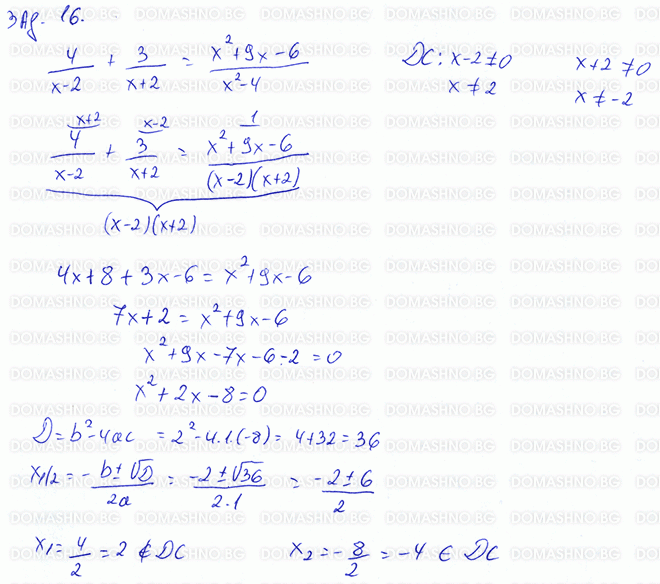 Зад. 16.
4/(x-2) + 3/(x+2) = (x²+9x-6)/(x²-4) DC: x-2≠0 x+2≠0
x≠2 x≠-2
x+2 x-2 1
4/(x-2) + 3/(x+2) = (x²+9x-6)/((x-2)(x+2))
(x-2)(x+2)
4x+8+3x-6=x²+9x-6
7x+2=x²+9x-6
x²+9x-7x-6-2=0
x²+2x-8=0
D=b²-4ac =2²-4.1.(-8)= 4+32=36
x1/2=-(b±√D)/2a=(-2±√36)/2.1 =(-2±6)/2
x1=4/2=2 ∉ DC x2=-8/2=-4 ∈ DC
DOMASHNO.BG